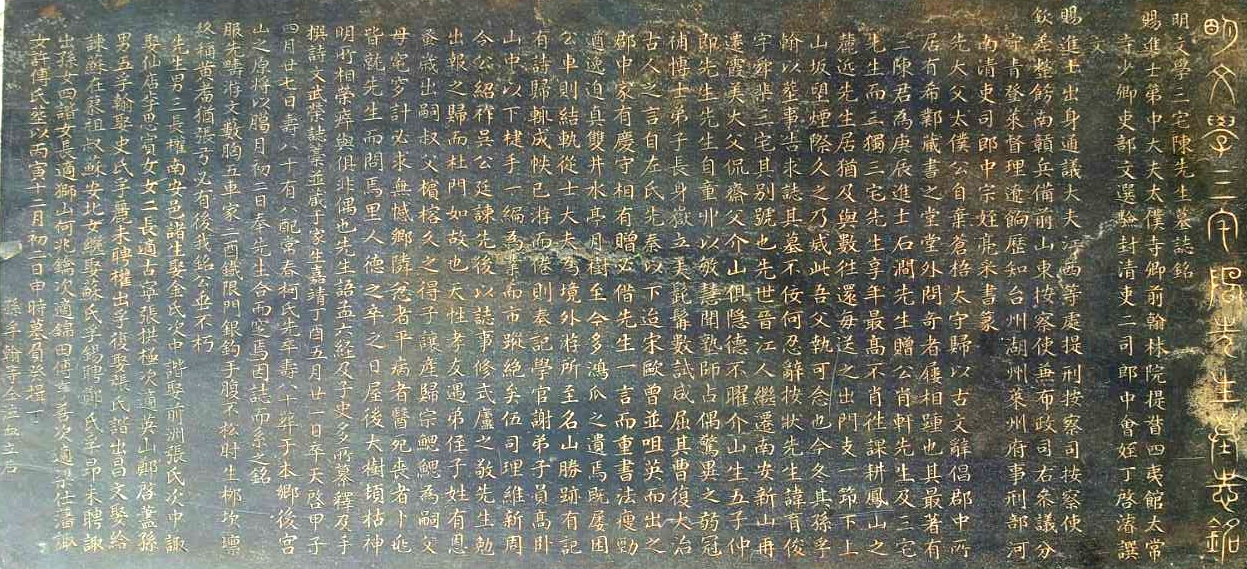 明文學三宅陳先生墓志銘
明文學三宅陳先生墓誌銘
賜進士第中大夫太僕寺卿前翰林院提督四夷館太常
寺少卿吏部文選驗封清吏二司郎中會姪丁啓濬譔
文
賜進士出身通議大夫江西等處提刑按察司按察使
欽差整飭南贛兵備前山東按察使兼布政司右參議分
守青登萊督理遼餉歷知台州湖州萊州府事刑部河
南清吏司郎中宗姪亮采書篆
先大父太僕公自棄蒼梧太守歸以古文辭倡郡中所
居有希鄴藏書之堂堂外問奇者僂相踵也其最著有
二陳君為庚辰進士石澗先生贈公肖軒先生及三宅
先生而三獨三宅先生享年最高不肖徃課耕鳳山之
麓近先生居猶及與數徃還每送之出門支一笻下上
山坂塱煙際久之乃烕此吾父執可念也今冬其孫孚
翰以塟事告來誌其墓不佞何忍辭按狀先生諱育俊
宇舜斐三宅其別號也先世晉江人繼遷南安新山再
遷霞美大父侃齋父介山俱隱德不曜介山生五子仲
即先生先生自重丱以敏慧聞塾師占偶驚異之弱冠
補博士弟子長身嶽立美髭髯數試咸屈其曹復大治
古人之言自左氏先秦以下迨宋歐曾並咀英而出之
郡中家有慶守相有贈必偕先生一言而重書法瘦勁
遒逸迫真雙井水亭月樹至今多鴻爪之遺焉既屢困
公車則結軌從士大夫為境外游所至名山勝跡有記
有詩歸輒成帙已游而倦則奏記學官謝弟子員高卧
山中以下楗手一編為業而市蹤絶矣伍司理維新周
令公紹祚吳公廷諫先後以誌事修式廬之敬先生勉
出報之歸而杜門如故也天性孝友遇弟侄子姓有恩
蚤歲出嗣叔父檟榕久之得子讓產歸宗鰓鰓為嗣父
母窀穸計必求無憾鄉隣忿者平病者醫死喪者卜兆
皆就先生而問焉里人德之卒之日屋後大樹頓枯神
明所相榮瘁與俱非偶也先生語孟六經及子史多所纂釋及手
撰詩文武榮誌藁並藏于家生嘉靖丁酉五月廿一日卒天啓甲子
四月廿七日壽八十有八配常春柯氏先卒壽八十塟于本鄉後宮
山之原將以臈月初二日奉先生合而窆焉因誌而系之銘
服先疇游文數胸五車家二酉鐵限門銀鈎手腹不枌射生梛坎壈
終稱黃耈猶張弓必有後我銘公垂不朽
先生男三長權南安邑諸生娶金氏次中 諧娶前洲張氏次申諏
娶仙店李思賓女女二長適古寧張拱極次適英山鄭啓藎孫
男五孚翰娶史氏孚麗未聘權出孚復娶張氏諧出昌文娶給
諫蘇在㕍祖叔蘇安北女繼娶蘇氏孚錫聘鄭氏孚昻未聘諏
出孫女四諧女長適獅山何兆鑰次適錦田傅 喜次適 仕藩諏
女許傅氏塟以丙寅十二月初二日申時墓負癸揖丁
孫孚翰等仝泣血立石